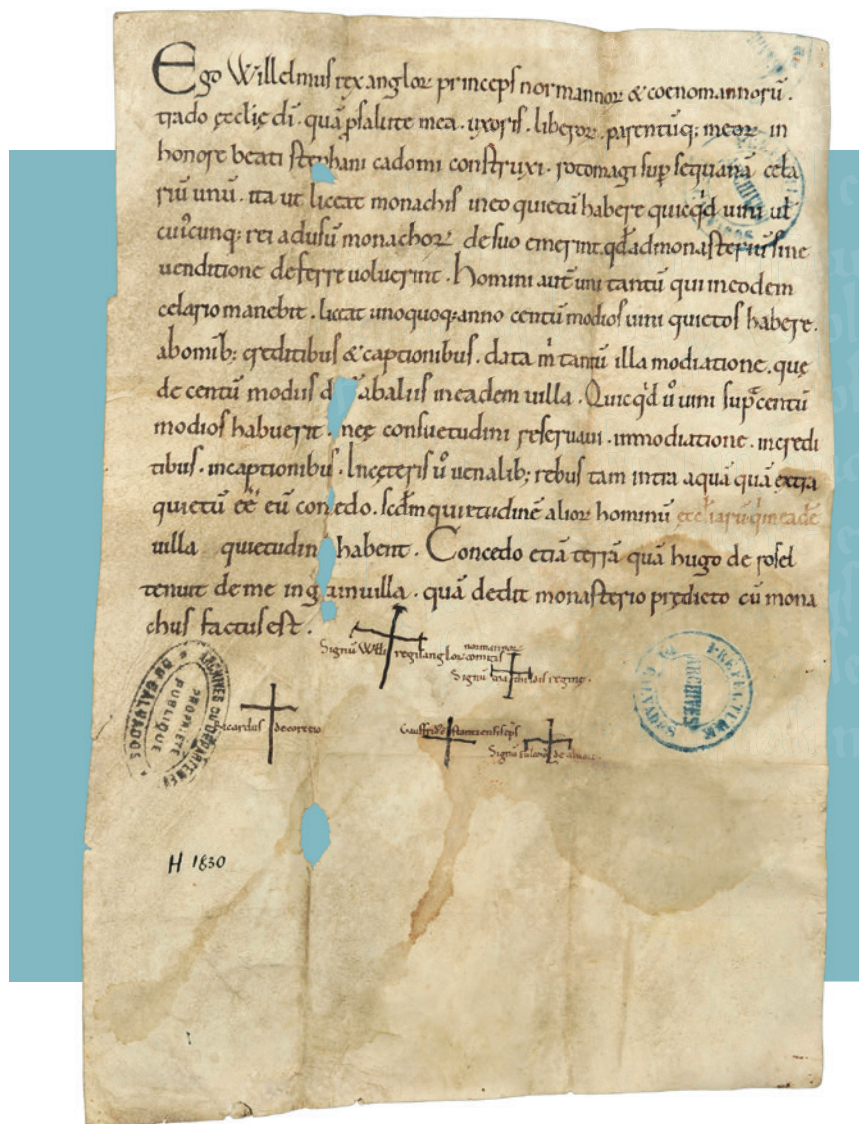 Ego Willelmus rex anglor princeps normannor & coenomannorū .
trado ęcclię dī . quā p salute mea . uxoris . liberor . parentūq; meor in
honore beati stephani cadomi construxi . rotomagi sup sequanā cela
riū unū . ita ut liceat monachis in eo quietū habere quicqd uini ut
cuicunq; rei ad usū monachor de suo emerint . qd ad monasteriū sine
uenditione deferre uoluerint . Homini aut uni tantū qui in eodem
celario manebit . liceat unoquoq; anno centū modios uini quietos habere .
ab omib; creditibus & captionibus . data m̄ tantū illa modiatione . quę
de centū modiis d abaliis in eadem uilla . Quicqd u uini sup centū
modios habuerit . meę consuetudini reseruaui . in modiatione . in credi
tibus . in captionibus . In cęteris u uenalib; rebus tam intra aquā quā extra
quietū eē eū con edo . scdm quietudinē alior hominū ęccliarū q in eadē
uilla quietudin habent . Concedo etiā terrā quā hugo de rosel
tenuit de me in g ainuilla . quā dedit monasterio prędicto cū mona
chus factus est .
normannor
Signū Willi regis anglor comitis
Signū mathildis reginę .
picardus de correio
Gauffrid stantiensis eps
Signū fulconis de alnou .
ARCHIVES DU DÉPARTEMENT
DU CALVADOS
PROPRIÉTÉ
PUBLIQUE
PREFECTURE
DU CALVADOS
ARCHIVES
H 1830